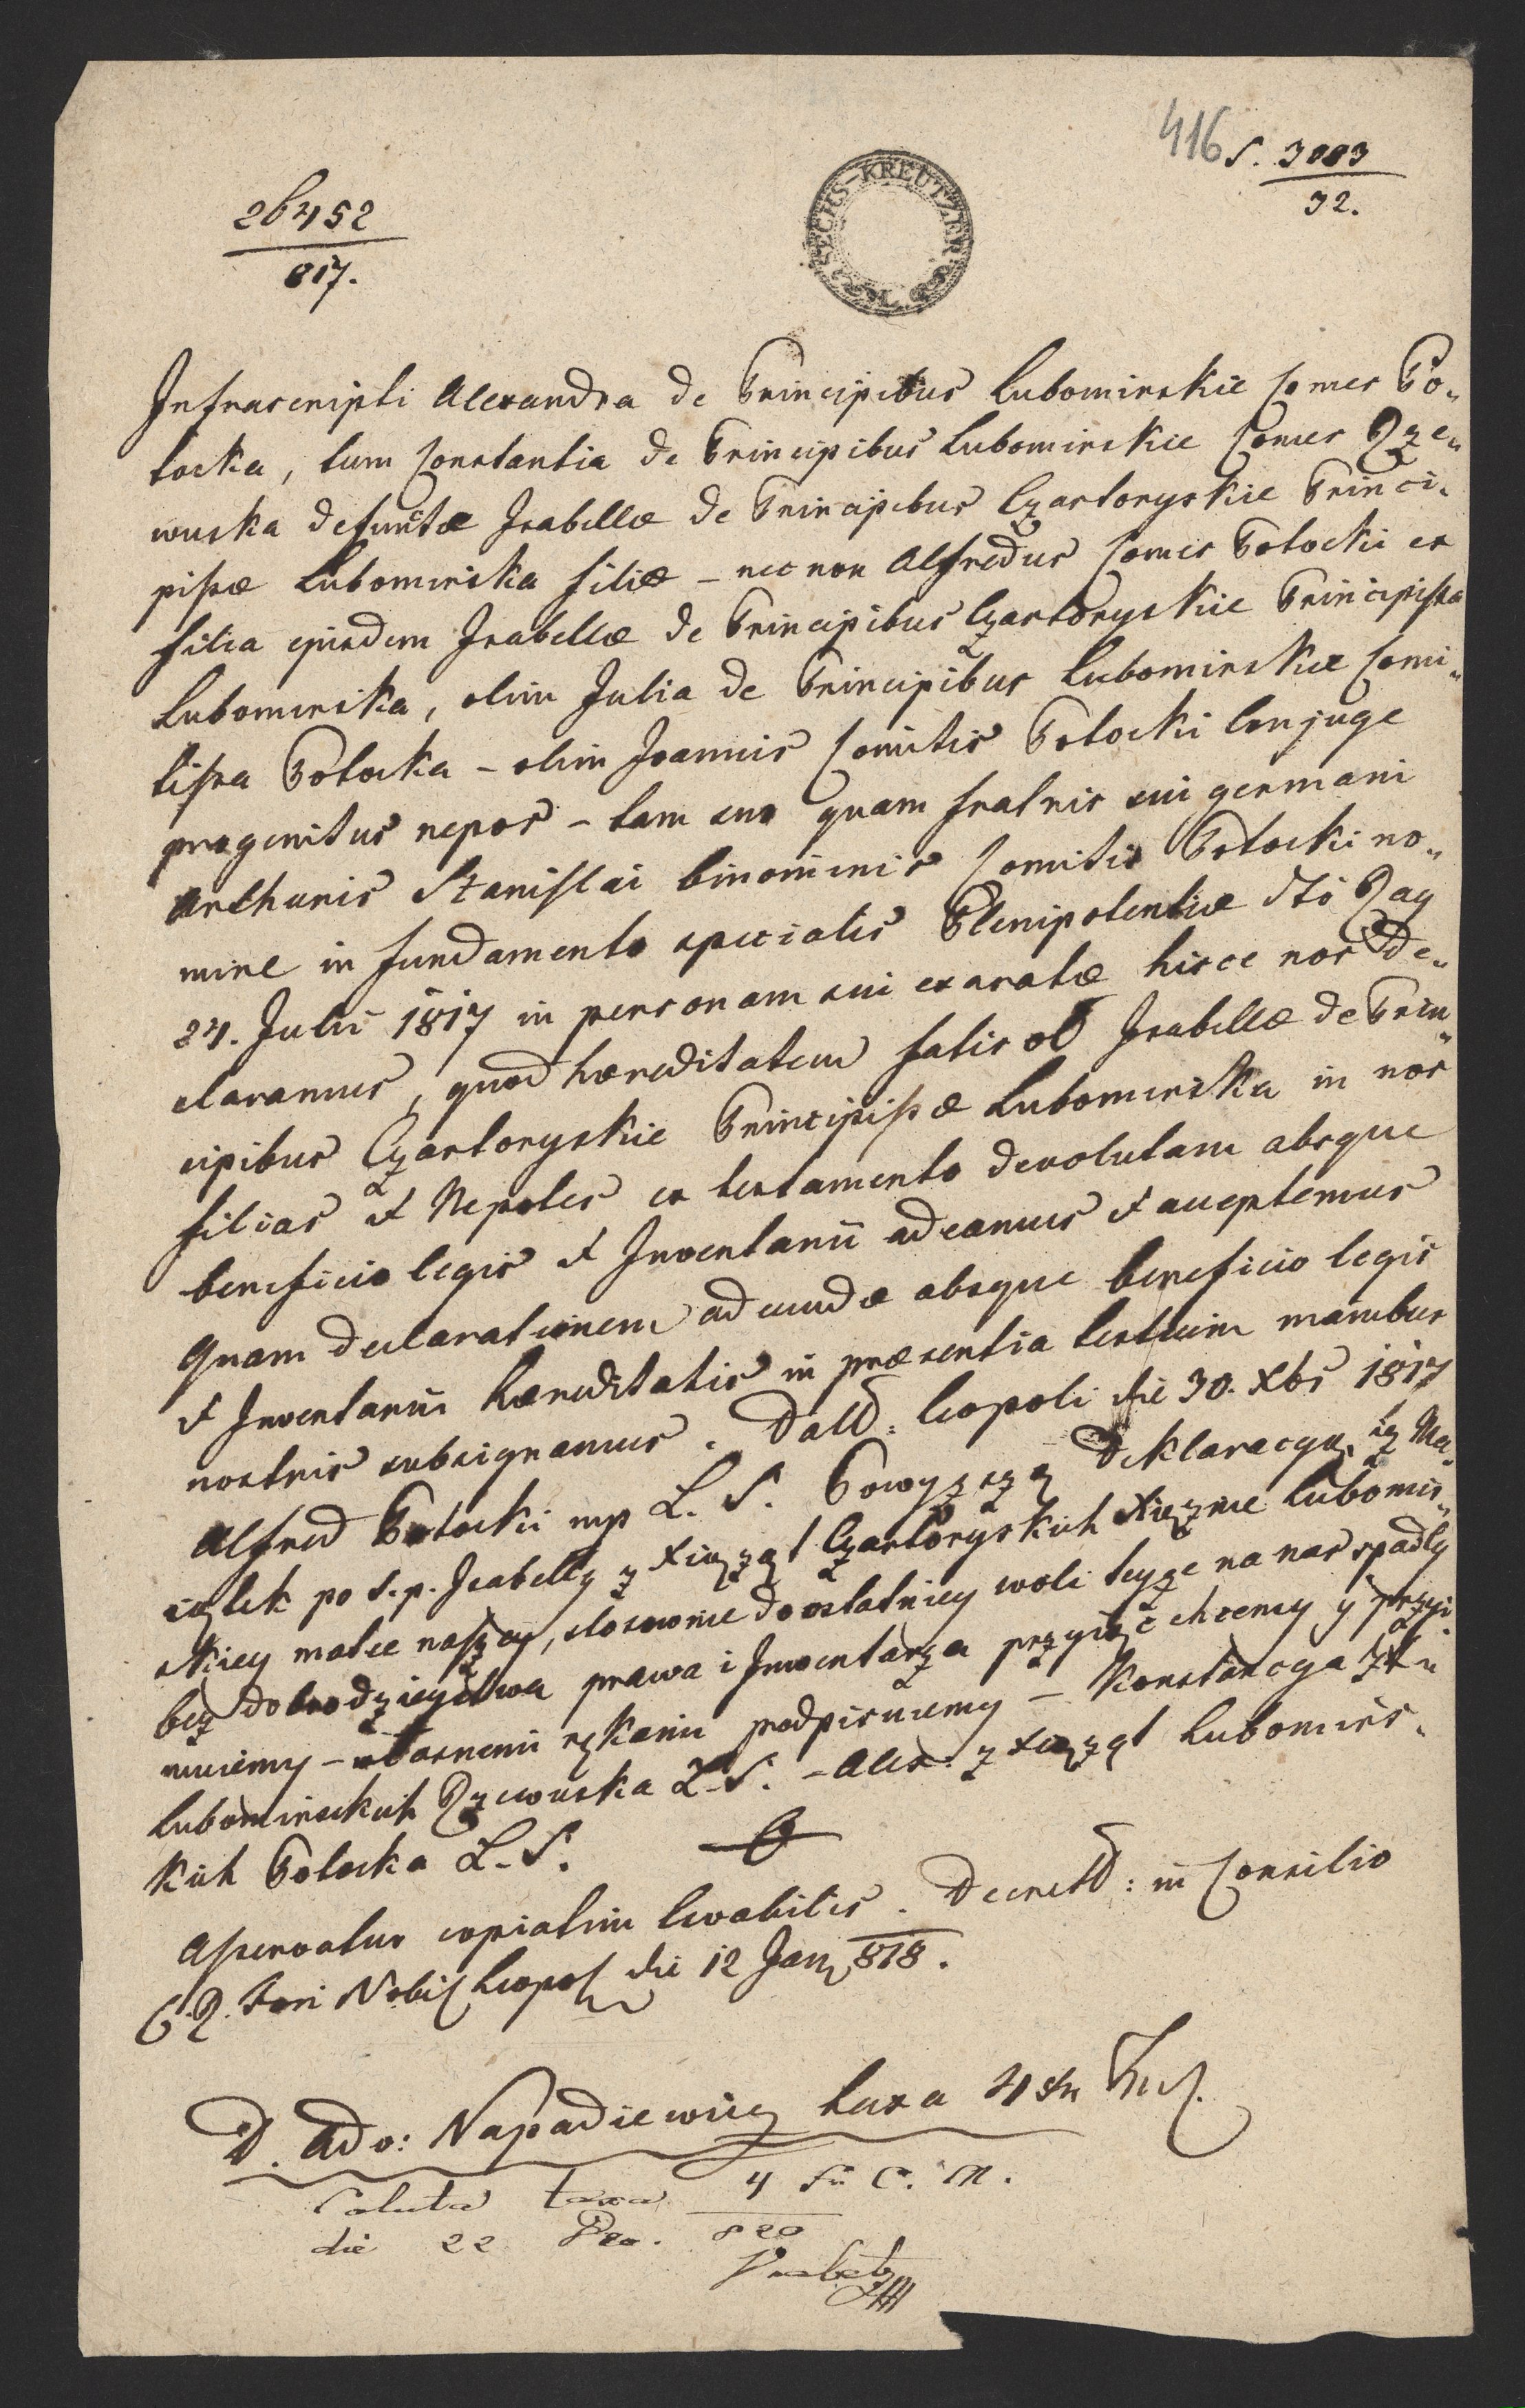 416 S. 3003
32.
26452
817.
SECHS-KREUTZER
Infrascripti Alexandra de Principibus Lubomirskie Comes Po„
tocka, tum Constantia de Principibus Lubomirskie Comes Rze„
wuska defunctæ Isabellæ de Principibus Czartoryskie Princi„
pissæ Lubomirska filiæ – nec non Alfredus Comes Potocki ex
filia ejusdem Isabellæ de Principibus Czartoryskie Principissa
Lubomirska, olim Julia de Principibus Lubomirskie Comi„
tissa Potocka – olim Joannis Comitis Potocki Conjuge
progenitus nepos – tam suo quam fratris sui germani
Arthuris Stanislai binominis Comitis Potocki no„
mine in fundamento specialis Plenipotentiæ dto
24. Julii 1817 in personam sui exaratæ hisce nos de„
claramus, quod hæreditatem fatis ol Isabellæ de Prin„
cipibus Czartoryskie Principissæ Lubomirska in nos
filias et Nepotes ex testamento devolutam absque
beneficio legis et Inventarii adeamus et acceptemus
Quam declarationem adeundæ absque beneficio legis
et Inventarii hæreditatis in præsentia testium manibus
nostris subsignamus. Datt: Leopoli die 30. Xbris 1817
Alfred Potocki mp L. S. Powyzszą Deklaracyą, iz Ma„
iątek po s. p. Isabelly z Xiążąt Czartoryskich Xiężnie Lubomir„
skiey matce naszey, stosownie do ostatniey woli teyże na nas spadły
bez dobrodzieystwa prawa i Inwentarza przyiąć chcemy y przyi„
muiemy – własnemi rękami podpisuiemy – Konstancya z X
Lubomirskich Rzewuska L. S. – Alex: z Xiążąt Lubomirs„
kich Potocka L. S.
Asservatur copiatim levabilis. Decrett: in Consilio
C. R. Fori Nobil Leopol die 12 Jan 818.
D. Adv: Napadiewicz taxa 4 fr
Soluta taxa 4 fr C. M.
die 22 820